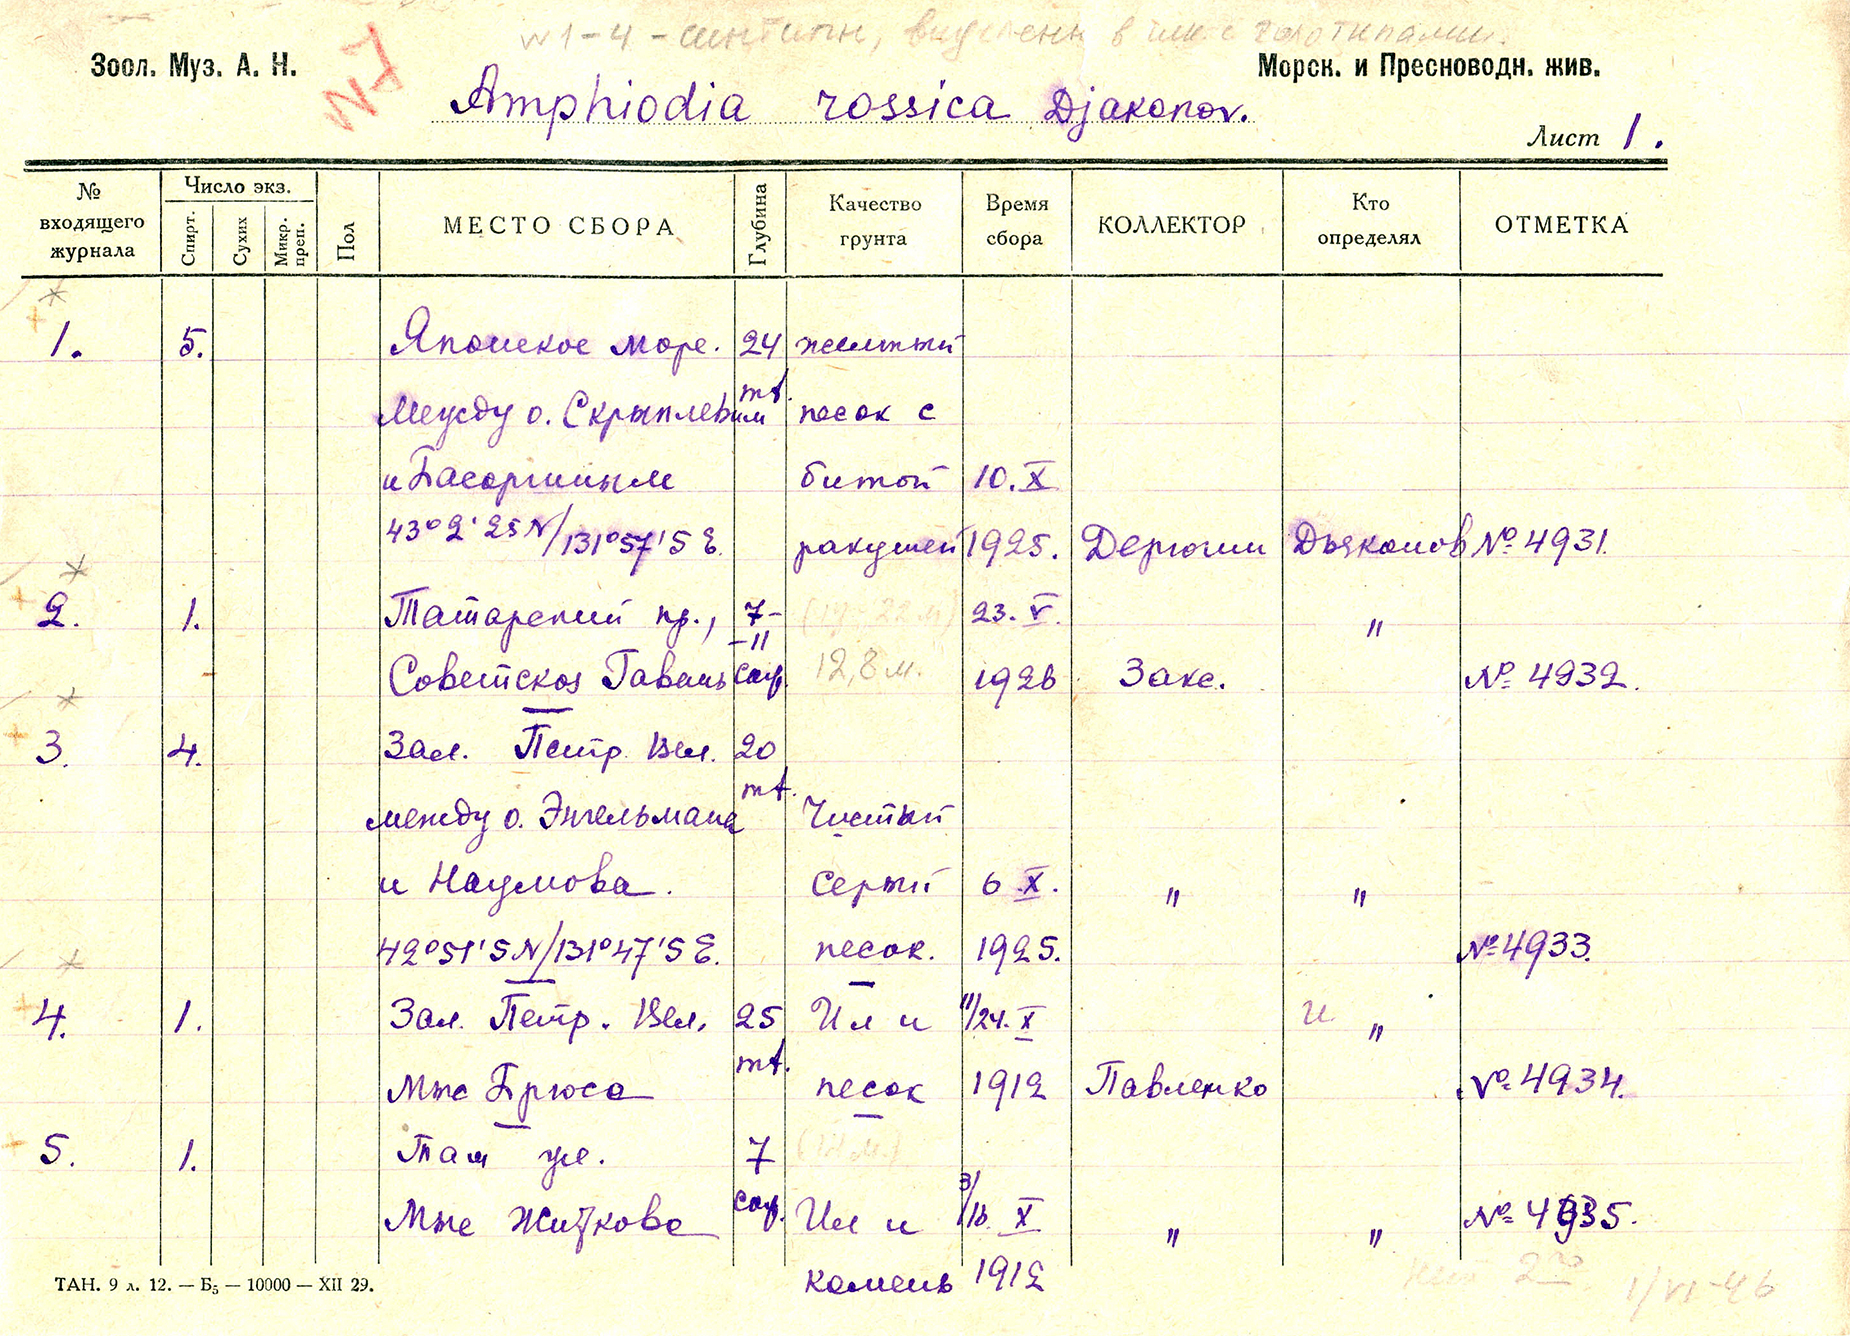 N 1-4 - синтипы, выделены в шк. с голотипами.
Зоол. Муз. А. Н.
Морск. и Пресноводн. жив.
Amphiodia rossica Djakonov.
Лист 1.
№ входящего журнала
Число экз.
Спирт.
Сухих
Микр. преп.
Пол
МЕСТО СБОРА
Глубина
Качество грунта
Время сбора
КОЛЛЕКТОР
Кто определял
ОТМЕТКА
1. 5. Японское море. 24 желтый
Между о. Скрыплевым mt. песок с
и Басаргиным битой 10.X
43°2'25 N/131°57'5 E. ракушей 1925. Дерюгин Дьяконов № 4931.
2. 1. Татарский пр., 7- 23.V.
Советская Гавань -11 саж. 12,8 м. 1926 Закс. " № 4932.
3. 4. Зал. Петр. Вел. 20
между о. Энгельмана mt. Чистый
и Наумова. серый 6.X. " "
42°51'5 N/131°47'5 E. песок. 1925. № 4933.
4. 1. Зал. Петр. Вел. 25 Ил и 11/24.X "
Мыс Брюса mt. песок 1912 Павленко № 4934.
5. 1. Там же. 7
Мыс Житкова саж. Ил и 3/16 X " " № 4935.
камень 1912
ТАН. 9 л. 12. — Б₅ — 10000 — XII 29.
1/VI-46